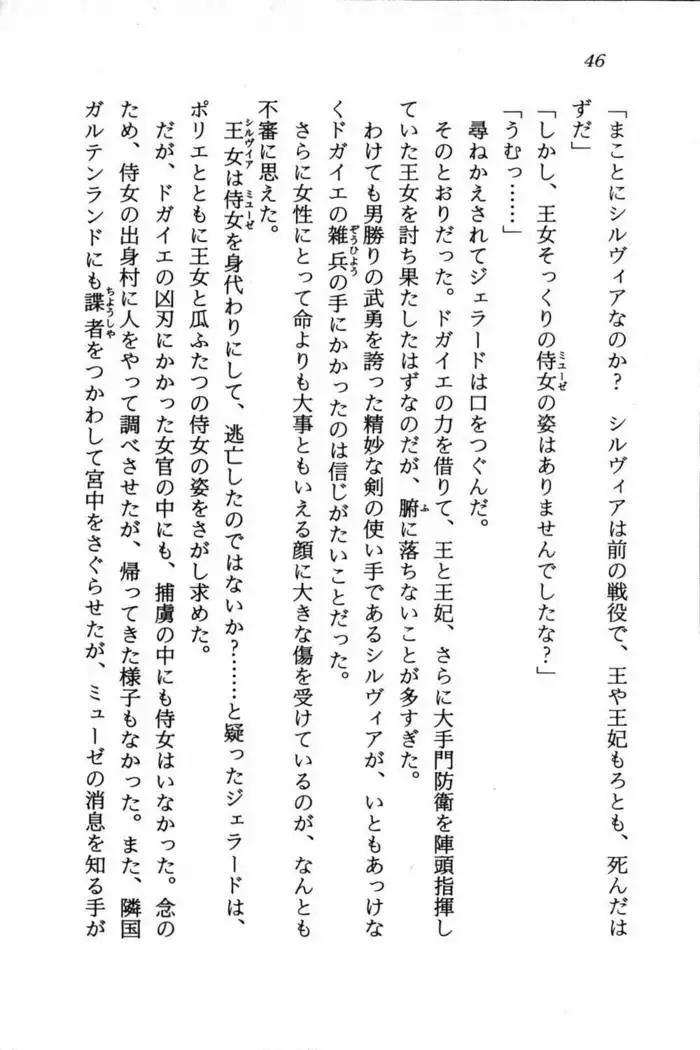 46
「まことにシルヴィアなのか？　シルヴィアは前の戦役で、王や王妃もろとも、死んだは
ずだ」
「しかし、王女そっくりの侍女の姿はありませんでしたな？」
「うむっ……」
尋ねかえされてジェラードは口をつぐんだ。
そのとおりだった。ドガイエの力を借りて、王と王妃、さらに大手門防衛を陣頭指揮し
ていた王女を討ち果たしたはずなのだが、腑に落ちないことが多すぎた。
わけても男勝りの武勇を誇った精妙な剣の使い手であるシルヴィアが、いともあっけな
くドガイエの雑兵の手にかかったのは信じがたいことだった。
さらに女性にとって命よりも大事ともいえる顔に大きな傷を受けているのが、なんとも
不審に思えた。
王女は侍女を身代わりにして、逃亡したのではないか？………と疑ったジェラードは、
ポリエとともに王女と瓜ふたつの侍女の姿をさがし求めた。
だが、ドガイエの凶刃にかかった女官の中にも、捕虜の中にも侍女はいなかった。念の
ため、侍女の出身村に人をやって調べさせたが、帰ってきた様子もなかった。また、隣国
ガルテンランドにも諜者をつかわして宮中をさぐらせたが、ミューゼの消息を知る手が